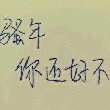 骚年
你还好不